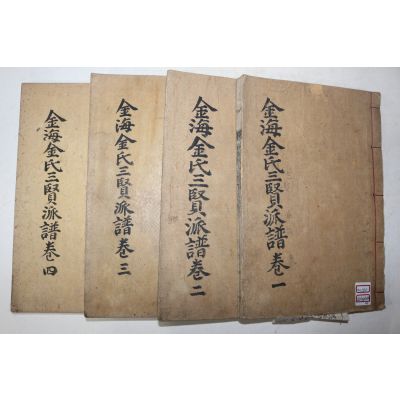 金海金氏三賢派譜卷一
金海金氏三賢派譜卷二
金海金氏三賢派譜卷三
金海金氏三賢派譜卷四